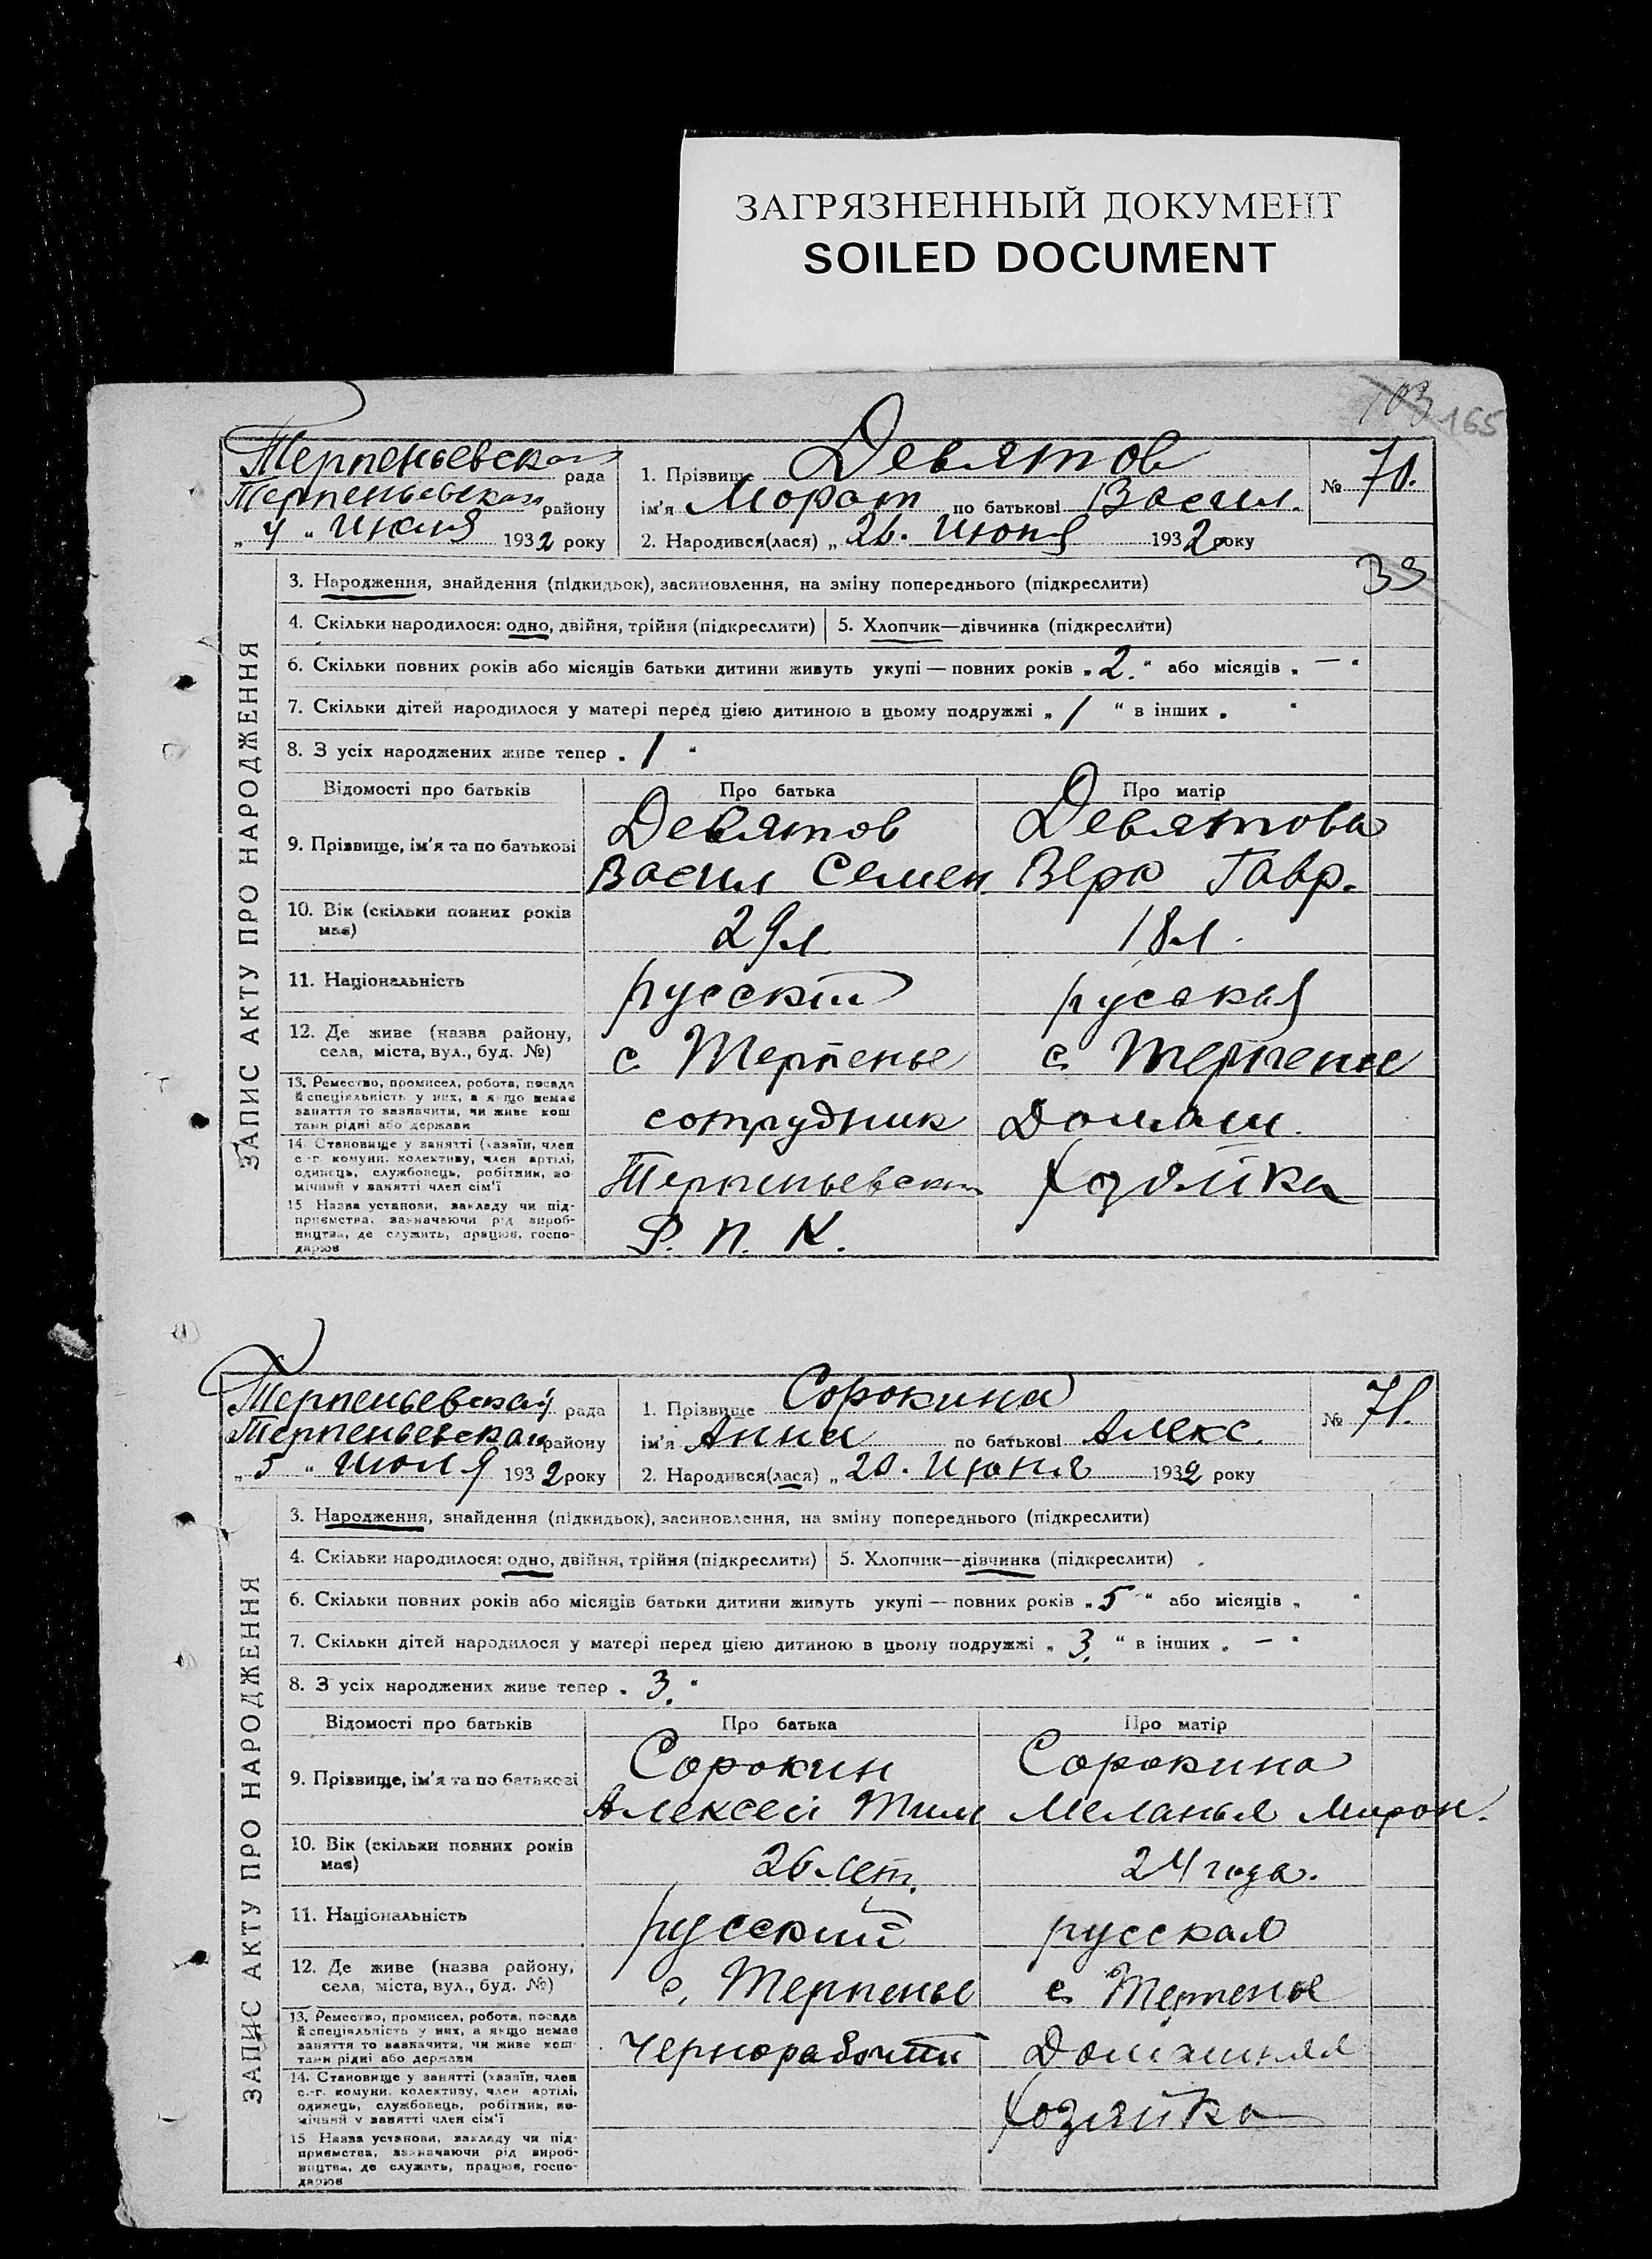 ЗАГРЯЗНЕННЫЙ ДОКУМЕНТ
SOILED DOCUMENT
103 165
Терпеньевская рада
Терпеньевская району
„ 4 “ Июля 1932 року
1. Прізвище Девятов
ім'я Морат по батькові Васил.
2. Народився(лася) „ 26. Июня 1932 року
№ 70.
33
ЗАПИС АКТУ ПРО НАРОДЖЕННЯ
3. Народження, знайдення (підкидьок), засиновлення, на зміну попереднього (підкреслити)
4. Скільки народилося: одно, двійня, трійня (підкреслити) 5. Хлопчик—дівчинка (підкреслити)
6. Скільки повних років або місяців батьки дитини живуть укупі — повних років „ 2. “ або місяців „ — “
7. Скільки дітей народилося у матері перед цією дитиною в цьому подружжі „ 1 “ в інших „ “
8. З усіх народжених живе тепер „ 1 “
Відомості про батьків Про батька Про матір
9. Прізвище, ім'я та по батькові
Девятов Девятова
Васил Семен. Вера Гавр.
10. Вік (скільки повних років має) 29 л 18 л.
11. Національність русский русская
12. Де живе (назва району, села, міста, вул., буд. №) с. Терпенье с. Терпенье
13. Ремество, промисел, робота, посада й спеціяльність у них, а якщо немає заняття то зазначити, чи живе коштами рідні або держави
сотрудник Домаш.
14. Становище у занятті (хазяїн, член с.-г. комуни, колективу, член артілі, одинець, службовець, робітник, помічний у занятті член сім'ї
Терпеньевской хозяйка
15. Назва установи, закладу чи підприємства, зазначаючи рід виробництва, де служить, працює, господарює
Р. П. К.
Терпеньевская рада
Терпеньевская району
„ 5 “ Июля 1932 року
1. Прізвище Сорокина
ім'я Анна по батькові Алекс.
2. Народився(лася) „ 20. Июня 1932 року
№ 71.
ЗАПИС АКТУ ПРО НАРОДЖЕННЯ
3. Народження, знайдення (підкидьок), засиновлення, на зміну попереднього (підкреслити)
4. Скільки народилося: одно, двійня, трійня (підкреслити) 5. Хлопчик—дівчинка (підкреслити)
6. Скільки повних років або місяців батьки дитини живуть укупі — повних років „ 5 “ або місяців „ “
7. Скільки дітей народилося у матері перед цією дитиною в цьому подружжі „ 3. “ в інших „ — “
8. З усіх народжених живе тепер „ 3. “
Відомості про батьків Про батька Про матір
9. Прізвище, ім'я та по батькові
Сорокин Сорокина
Алексей Тим Меланья Мирон.
10. Вік (скільки повних років має) 26 лет. 24 года.
11. Національність русский русская
12. Де живе (назва району, села, міста, вул., буд. №) с. Терпенье с. Терпенье
13. Ремество, промисел, робота, посада й спеціяльність у них, а якщо немає заняття то зазначити, чи живе коштами рідні або держави
Чернорабочий Домашняя
14. Становище у занятті (хазяїн, член с.-г. комуни, колективу, член артілі, одинець, службовець, робітник, помічний у занятті член сім'ї
хозяйка
15. Назва установи, закладу чи підприємства, зазначаючи рід виробництва, де служить, працює, господарює